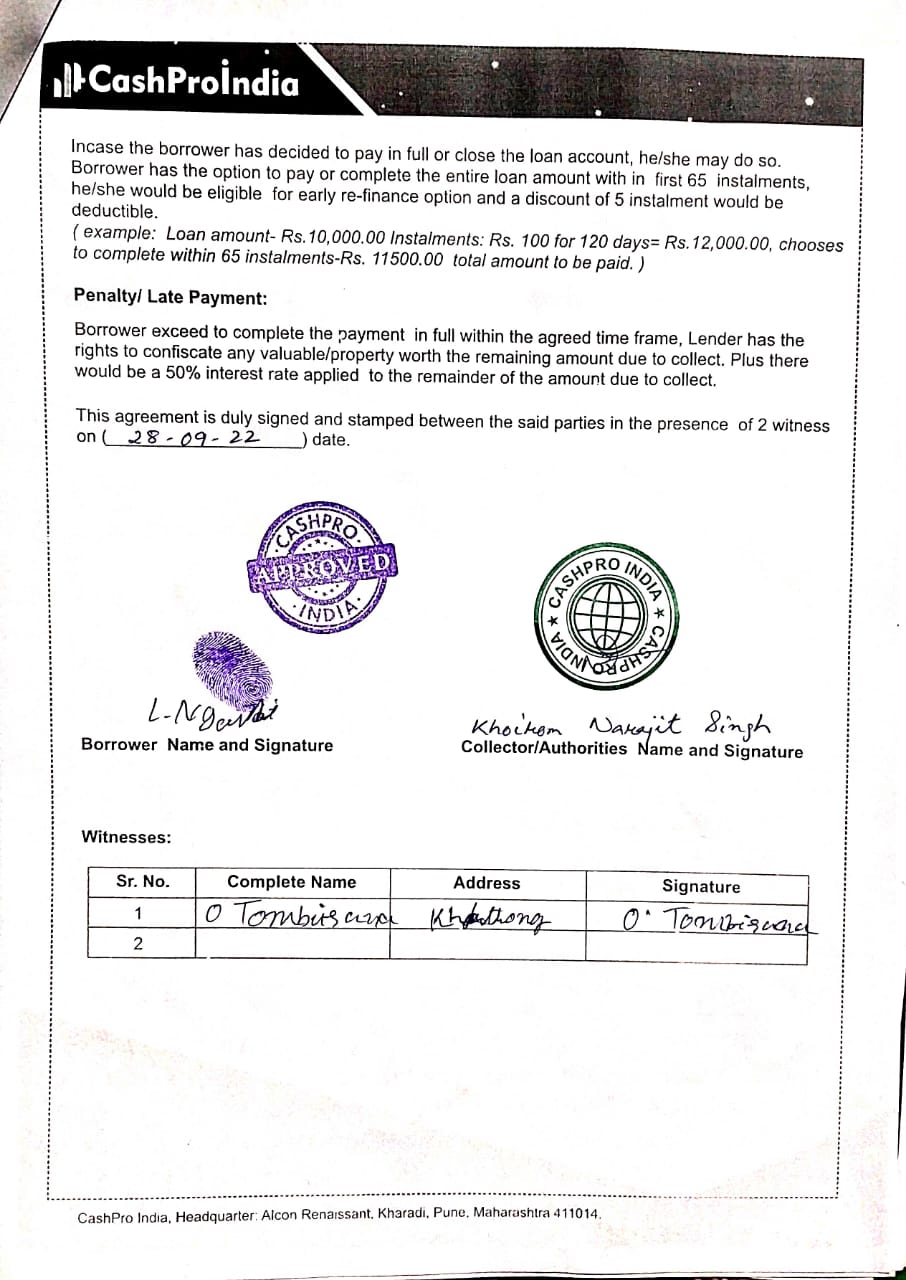 CashProIndia
Incase the borrower has decided to pay in full or close the loan account, he/she may do so.
Borrower has the option to pay or complete the entire loan amount with in first 65 instalments,
he/she would be eligible for early re-finance option and a discount of 5 instalment would be
deductible.
( example: Loan amount- Rs.10,000.00 Instalments: Rs. 100 for 120 days= Rs.12,000.00, chooses
to complete within 65 instalments-Rs. 11500.00 total amount to be paid. )
Penalty/ Late Payment:
Borrower exceed to complete the payment in full within the agreed time frame, Lender has the
rights to confiscate any valuable/property worth the remaining amount due to collect. Plus there
would be a 50% interest rate applied to the remainder of the amount due to collect.
This agreement is duly signed and stamped between the said parties in the presence of 2 witness
on ( 28-09-22 ) date.
CASHPRO
APPROVED
INDIA
CASHPRO INDIA ★ CASHPRO INDIA ★
Khoirom Narajit Singh
Borrower Name and Signature
Collector/Authorities Name and Signature
Witnesses:
Sr. No. Complete Name Address Signature
1 O
2
CashPro India, Headquarter: Alcon Renaissant, Kharadi, Pune, Maharashtra 411014.